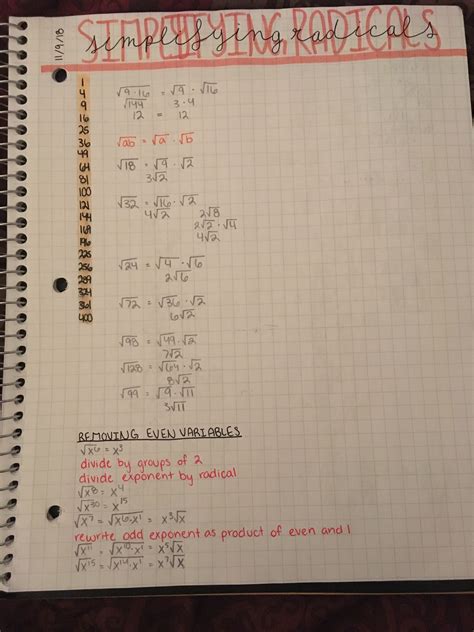 11/9/18
SIMPLIFYING RADICALS
simplifying radicals
1
4
9
16
25
36
49
64
81
100
121
144
169
196
225
256
289
324
361
400
√9·16 = √9 · √16
√144 3·4
12 = 12
√ab = √a · √b
√18 = √9 · √2
3√2
√32 = √16 · √2
4√2
2√8
2√2 · √4
4√2
√24 = √4 · √6
2√6
√72 = √36 · √2
6√2
√98 = √49 · √2
7√2
√128 = √64 · √2
8√2
√99 = √9 · √11
3√11
REMOVING EVEN VARIABLES
√x⁶ = x³
divide by groups of 2
divide exponent by radical
√x⁸ = x⁴
√x³⁰ = x¹⁵
√x⁷ = √x⁶·x¹ = x³√x
rewrite odd exponent as product of even and 1
√x¹¹ = √x¹⁰·x¹ = x⁵√x
√x¹⁵ = √x¹⁴·x¹ = x⁷√x